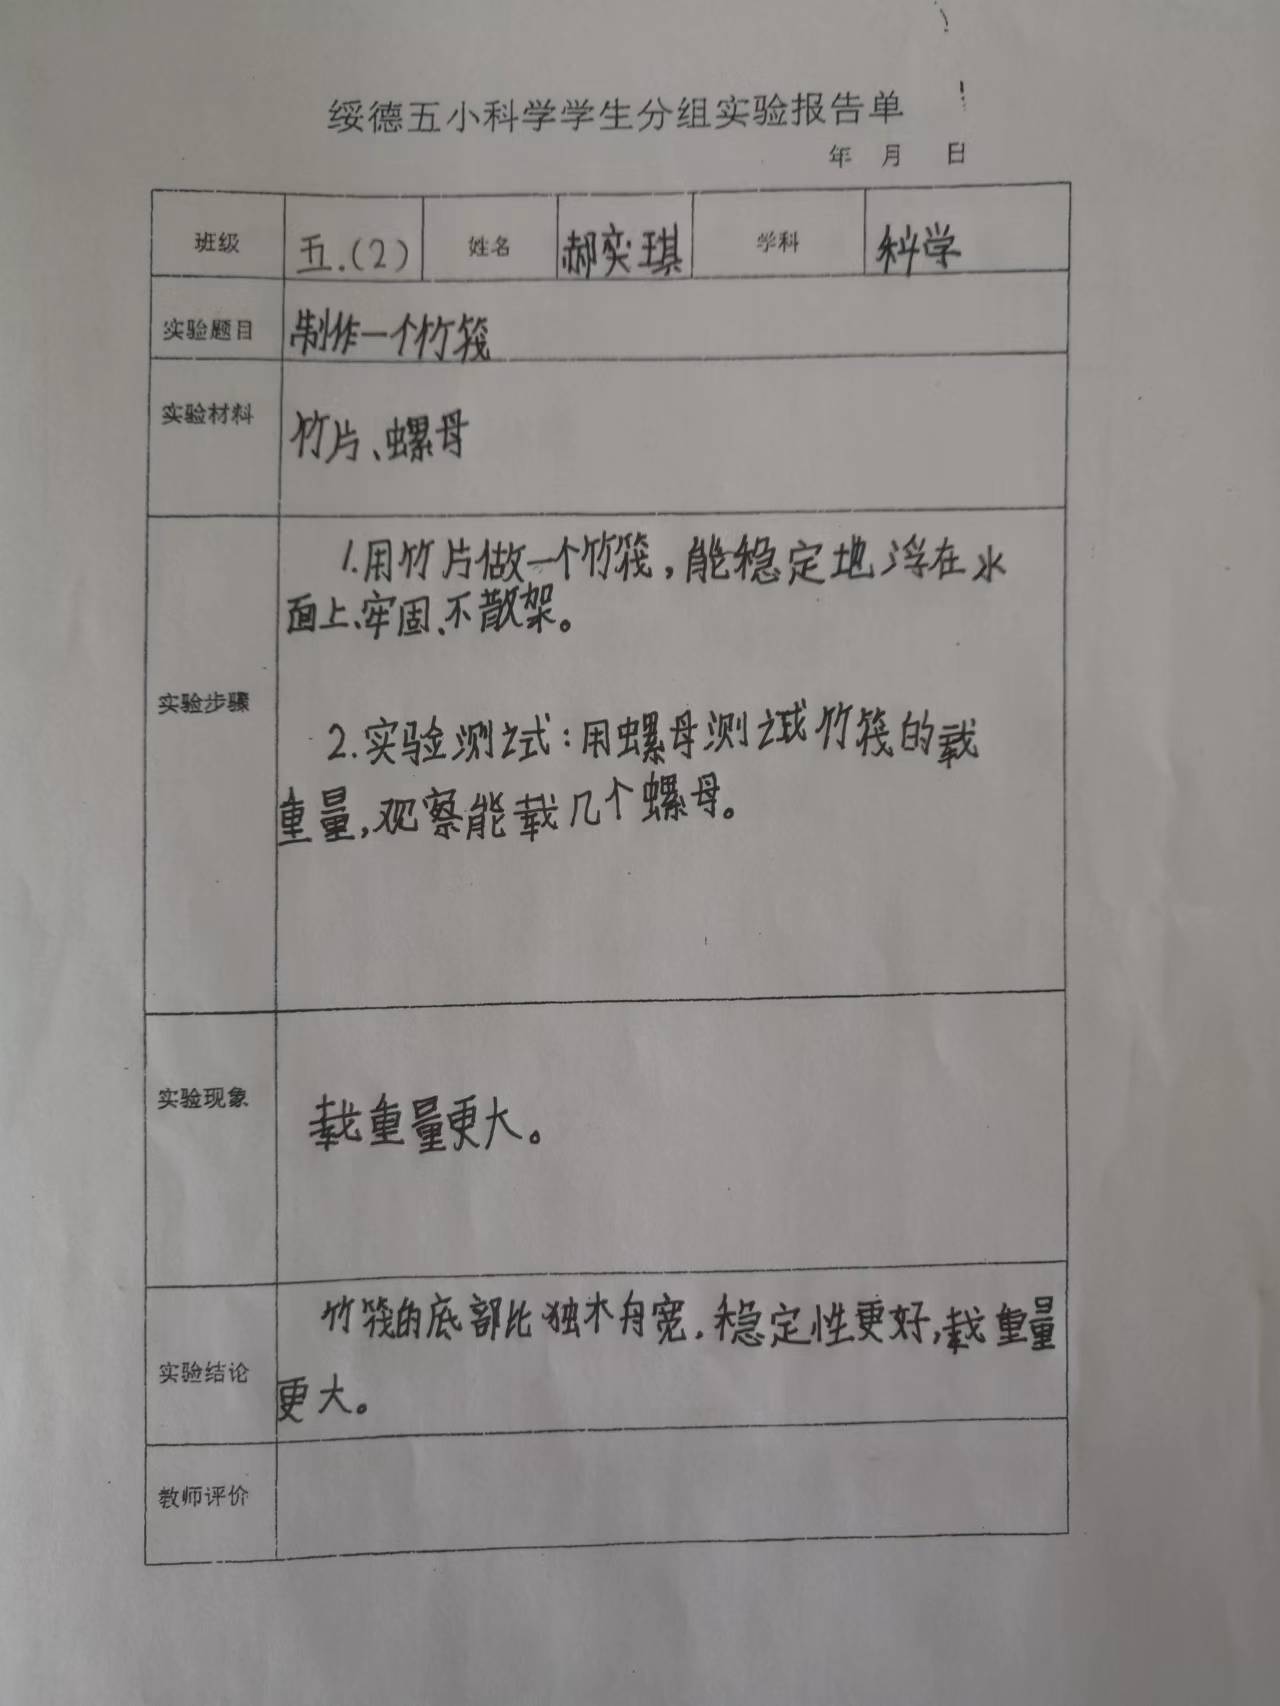 绥德五小科学学生分组实验报告单
年 月 日
班级 五.(2) 姓名 郝奕琪 学科 科学
实验题目 制作一个竹筏
实验材料 竹片、螺母
实验步骤
1.用竹片做一个竹筏,能稳定地浮在水
面上、牢固、不散架。
2.实验测试:用螺母测试竹筏的载
重量,观察能载几个螺母。
实验现象 载重量更大。
实验结论
竹筏的底部比独木舟宽.稳定性更好,载重量
更大。
教师评价